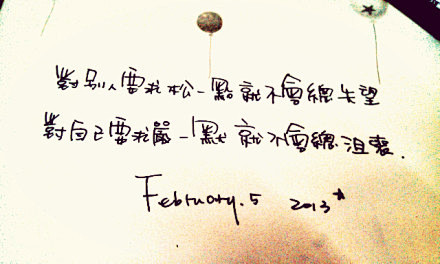 對別人要求松一點就不會總失望
對自己要求嚴一點就不會總沮喪.
February.5 2013